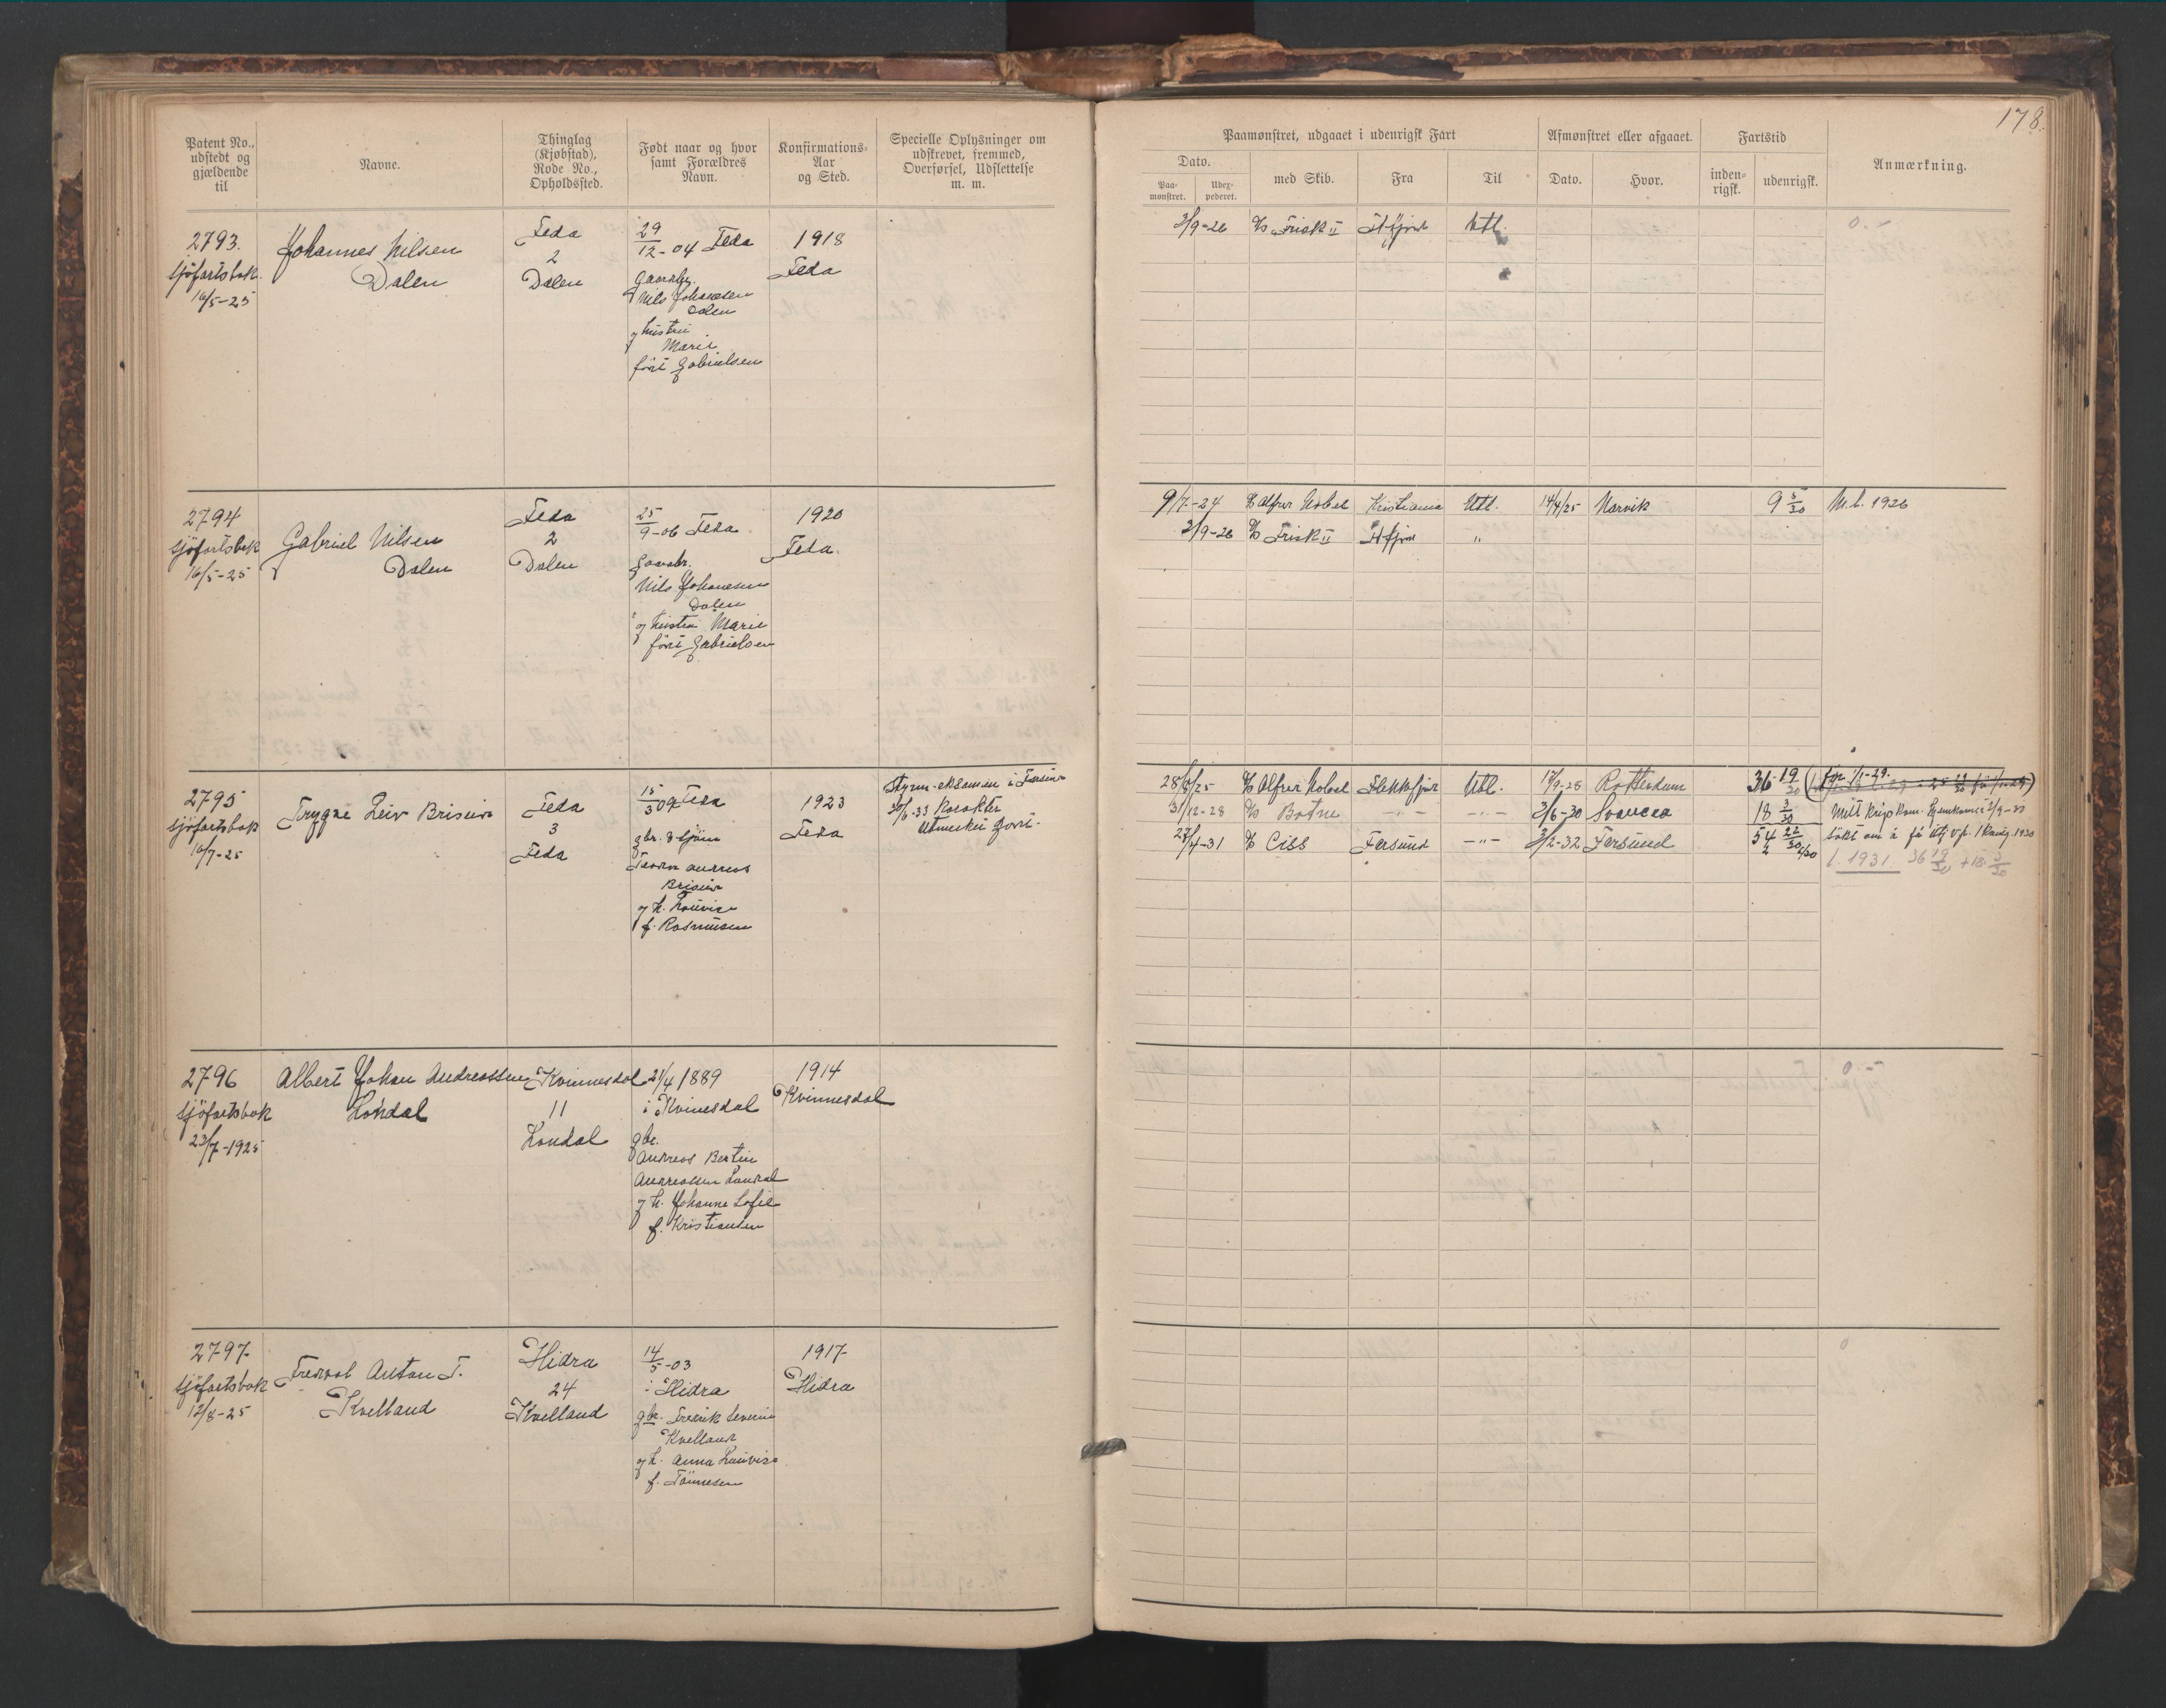 178.
Patent No., udstedt og gjældende til
Navne.
Thinglag (Kjøbstad), Rode No., Opholdssted.
Født naar og hvor samt Forældres Navn.
Konfirmations-Aar og Sted.
Specielle Oplysninger om udskrevet, fremmed, Overførsel, Udslettelse m. m.
Paamønstret, udgaaet i udenrigsk Fart
Dato.
Paa-mønstret.
med Skib.
Fra
Til
Afmønstret eller afgaaet.
Dato.
Hvor.
Fartstid
inden-rigsk.
udenrigsk.
Anmærkning.
2793.
sjöfartsbok.
16/5-25
Johannes Nilsen
Dalen
Feda
2
Dalen
29/12-04 Feda
Gaardbr.
Nils Johanesen
Dalen
og hustru
Marie
født Gabrielsen
1918
Feda
3/9-26 Frisk II Fl.fjord Utl.
0.-
2794
sjöfartsbok
16/5-25
Gabriel Nilsen
Dalen
Feda
2
Dalen
25/9-06 Feda
Gaardbr.
Nils Johanesen
Dalen
og hustru Marie
født Gabrielsen
1920
Feda.
9/7-24 Alfred Nobel Kristiania Utl. 14/4/25 Narvik 9 5/30 M.b. 1926
3/9-26 Frisk II Fl.fjord "
2795
sjöfartsbok
16/7-25
Trygve Leiv Briseid
Feda
3
Feda
15/3 09 Feda
gbr. & sjöm
Teodor Andreas
Briseid
og h. Lovise
f. Rasmusen
1923
Feda
Styrm.-eksamen i Farsund
30/6-33 Karakter
Utmerket godt.
28/8/25 Alfred Nobel Flekkefjord Utl. 17/9-28 Rotterdam 36 19/30
3/12-28 Botne -"- -"- 3/6-30 Svansea 18 3/30
27/4-31 Ciss Farsund -"- 3/2-32 Farsund 54 22/30
før 1/1-29.
søkt om å få utj. v.pl. 1930
1931 36 19/30 + 18 3/30
2796
sjöfartsbok
23/7-1925
Albert Johan Andreassen
Londal
Kvinnesdal
11
Londal
21/4 1889
i Kvinesdal
gbr.
Andreas Bertin
Andreassen Londal
og h. Johanne Sofie
f. Kristiansen
1914
Kvinnesdal
0.-
2797
sjöfartsbok
12/8-25
Fredval Anton T.
Kvelland
Hidra
24
Kvelland
14/5-03
i Hidra
gbr. Fredrik Severin
Kvelland
og h. Anna Lovise
f. Tönnesen
1917
Hidra
0